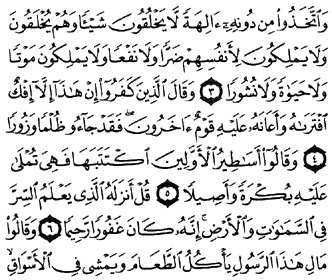 وَٱتَّخَذُوا۟ مِن دُونِهِۦٓ ءَالِهَةً لَّا يَخْلُقُونَ شَيْـًٔا وَهُمْ يُخْلَقُونَ
وَلَا يَمْلِكُونَ لِأَنفُسِهِمْ ضَرًّا وَلَا نَفْعًا وَلَا يَمْلِكُونَ مَوْتًا
وَلَا حَيَوٰةً وَلَا نُشُورًا ٣ وَقَالَ ٱلَّذِينَ كَفَرُوٓا۟ إِنْ هَـٰذَآ إِلَّآ إِفْكٌ
ٱفْتَرَىٰهُ وَأَعَانَهُۥ عَلَيْهِ قَوْمٌ ءَاخَرُونَ ۖ فَقَدْ جَآءُو ظُلْمًا وَزُورًا
٤ وَقَالُوٓا۟ أَسَـٰطِيرُ ٱلْأَوَّلِينَ ٱكْتَتَبَهَا فَهِىَ تُمْلَىٰ
عَلَيْهِ بُكْرَةً وَأَصِيلًا ٥ قُلْ أَنزَلَهُ ٱلَّذِى يَعْلَمُ ٱلسِّرَّ
فِى ٱلسَّمَـٰوَٰتِ وَٱلْأَرْضِ ۚ إِنَّهُۥ كَانَ غَفُورًا رَّحِيمًا ٦ وَقَالُوا۟
مَالِ هَـٰذَا ٱلرَّسُولِ يَأْكُلُ ٱلطَّعَامَ وَيَمْشِى فِى ٱلْأَسْوَاقِ ۙ